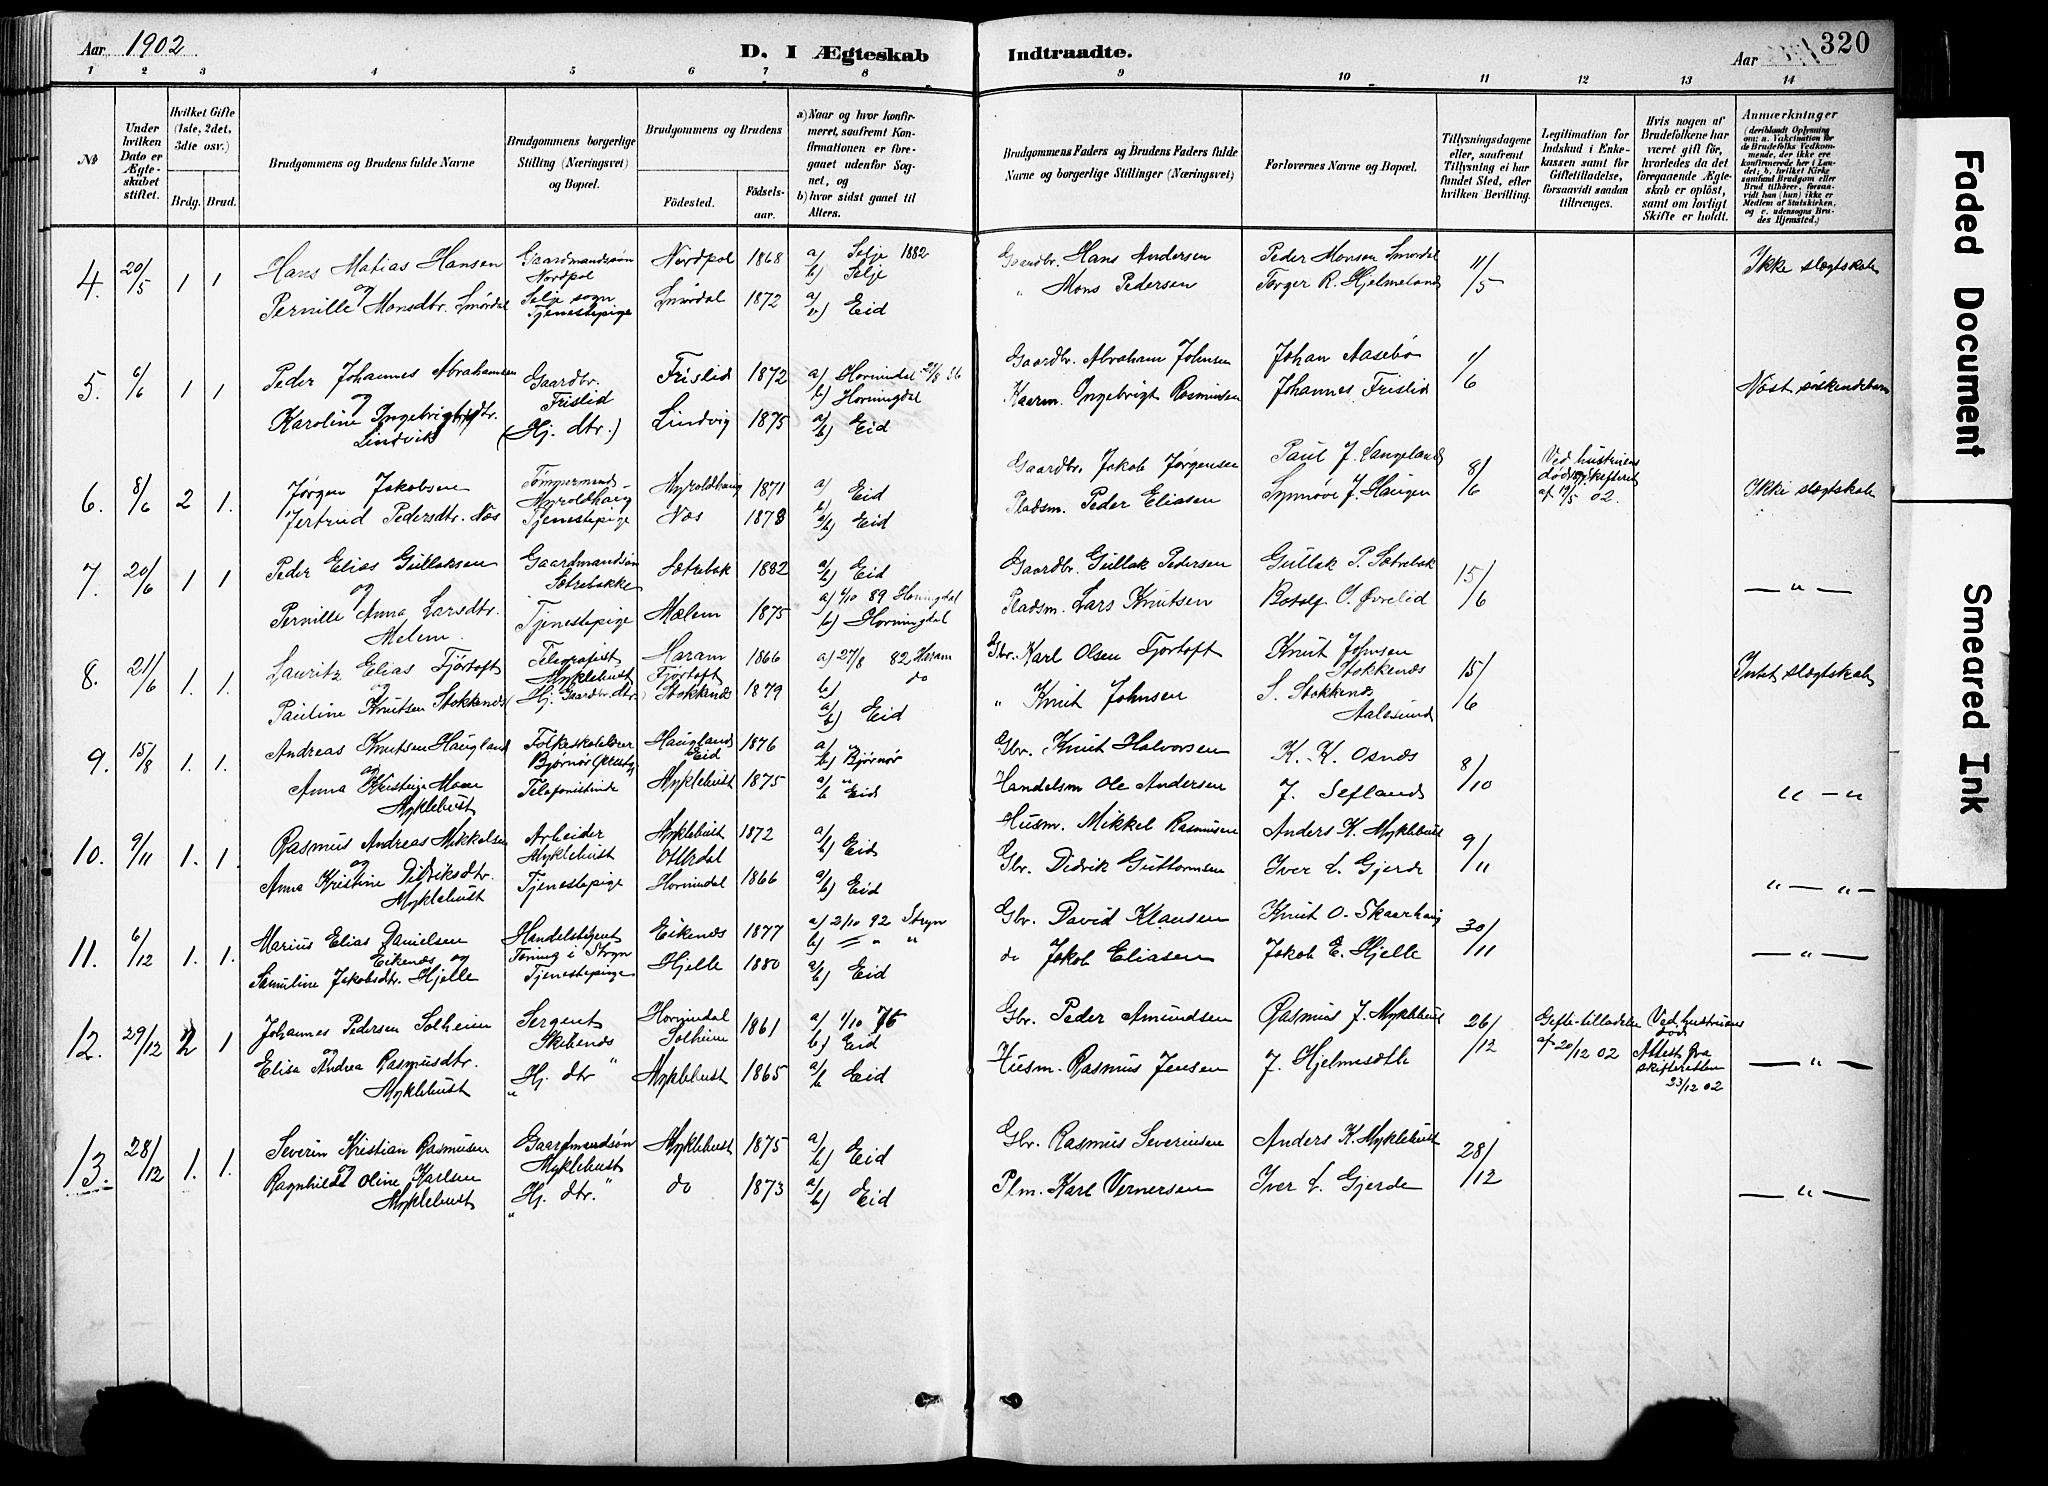 Aar 1902
D. I Ægteskab Indtraadte.
Aar
320
1 2 3 4 5 6 7 8 9 10 11 12 13 14
No
Under hvilken Dato er Ægteskabet stiftet.
Hvilket Gifte (1ste, 2det, 3die osv.)
Brdg. Brud.
Brudgommens og Brudens fulde Navne
Brudgommens borgerlige Stilling (Næringsvei) og Bopæl.
Brudgommens og Brudens
Fødested.
Fødsels-aar.
a) Naar og hvor konfirmeret, saafremt Konfirmationen er foregaaet udenfor Sognet, og
b) hvor sidst gaaet til Alters.
Brudgommens Faders og Brudens Faders fulde Navne og borgerlige Stillinger (Næringsvei)
Forlovernes Navne og Bopæl.
Tillysningsdagene eller, saafremt Tillysning ei har fundet Sted, efter hvilken Bevilling.
Legitimation for Indskud i Enkekassen samt for Giftetilladelse, forsaavidt saadan tiltrænges.
Hvis nogen af Brudefolkene har været gift før, hvorledes da det foregaaende Ægteskab er opløst, samt om lovligt Skifte er holdt.
Anmærkninger
(deriblandt Oplysning om: a. Vakcination for de Brudefolks Vedkommende, der ikke ere konfirmerede her i Landet; b. hvilket Kirkesamfund Brudgom eller Brud tilhører, forsaavidt han (hun) ikke er Medlem af Statskirken, og c. udensogns Brudes Hjemsted.)
4. 20/5 1 1 Hans Matias Hansen Gaardmandssøn Nordpol Nordpol 1868 a) Selje 1882 b) Selje Gaardbr. Hans Andersen Peder Monsen Smørdal 11/5 Ikke slægtskab
og Pernille Monsdtr. Smørdal Selje sogn Tjenestepige Smørdal 1872 a/b) Eid " Mons Pedersen Torger R. Hjelmeland
5. 6/6 1 1 Peder Johannes Abrahamsen Gaardbr. Frislid Frislid 1872 a) Hornindal b) Horningdal Gaardbr. Abraham Johnsen Johan Aasebø 1/6 Næst søskendebarn
og Karoline Ingebrigtsdtr. Lindvik (Hj. dtr.) Lindvig 1875 a/b) Eid Kaarm. Ingebrigt Rasmussen Johannes Frislid
6. 8/6 2 1. Jørgen Jakobsen Tømmermand Myroldhaug Myroldhaug 1871 a/b) Eid Gaardbr. Jakob Jørgensen Paul J. Langeland 8/6 Ved hustruens død. Ikke slægtskab
Jertrud Pedersdtr. Nos Tjenestepige Nos 1878 a/b) Eid Pladsm. Peder Eliasen Synnøve J. Haugen
7. 20/6 1 1 Peder Elias Gullaksen Gaardmandssøn Sætrebakke Sætrebak 1882 a/b) Eid Gaardbr. Gullak Pedersen Gullak P. Sætrebak 15/6 — " —
og Pernille Anna Larsdtr. Melem. Tjenestepige Mælem 1875 a) 1/10 89 Horningdal b) Horningdal Pladsm. Lars Knutsen Botolf O. Øvrelid
8. 21/6 1. 1. Lauritz Elias Fjørtoft Telegrafist Myklebust Haram Fjørtoft 1866 a) 27/8 82 Haram b) do Gbr. Karl Olsen Fjørtoft Knut Johnsen Stokkenes 15/6 Intet slægtskab
og Pauline Knutsen Stokkenes (Hj. Gaardbr. dtr.) Stokkenes 1879 a/b) Eid " Knut Johnsen S. Stokkenes Aalesund
9. 15/8 1. 1. Andreas Knutsen Haugland Folkeskolelærer Bjørnør Haugland Eid 1876 a/b) Bjørnør Gbr. Knut Halvorsen K. K. Osnes 8/10 " — "
og Anna Kristine Moen Myklebust Telefonistinde Myklebust 1875 a/b Eid Handelsm Ole Andersen J. Sefland
10. 9/11 1. 1. Rasmus Andreas Mikkelsen Arbeider Myklebust Myklebust Otterdal 1872 a/b) Eid Husm. Mikkel Rasmusen Anders K. Myklebust 9/11 " — " —
og Anna Kristine Didriksdtr. Myklebust Tjenestepige Hornindal 1866 a/b) Eid Gbr. Didrik Guttormsen Iver L. Gjerde
11. 6/12 1. 1. Marius Elias Danielsen Eikenes og Handelsbetjent Toning i Stryn Eikenes 1877 a) 2/10 92 Stryn b) — " " Gbr. David Klausen Knut O. Skaarhaug 30/11 — " —
Samuline Jakobsdtr. Hjelle Tjenestepige Hjelle 1880 a/b) Eid do Jakob Eliasen Jakob E. Hjelle
12. 29/12 2 1 Johannes Pedersen Solheim Sergent Skibenes Hornindal Solheim 1861 a) 1/10 76 b) Eid Gbr. Peder Amundsen Rasmus J. Myklebust 26/12 Gifte-tilladelse af 20/12 02 Ved hustruens død Attest fra skifteretten 23/12 02 — " —
og Elisa Andrea Rasmusdtr. Myklebust Hj. dtr " Myklebust 1865 a/b Eid Husm. Rasmus Jensen J. Hjelmsæth
13. 28/12 1. 1. Severin Kristian Rasmusen Gaardmandssøn Myklebust Myklebust 1875 a/b) Eid Gbr. Rasmus Severinsen Anders K. Myklebust 28/12 — " —
Ragnhild Oline Karlsen Myklebust Hj. dtr. " do 1873 a/b) Eid Plm. Karl Vernersen Iver L. Gjerde
Faded Document
Smeared Ink